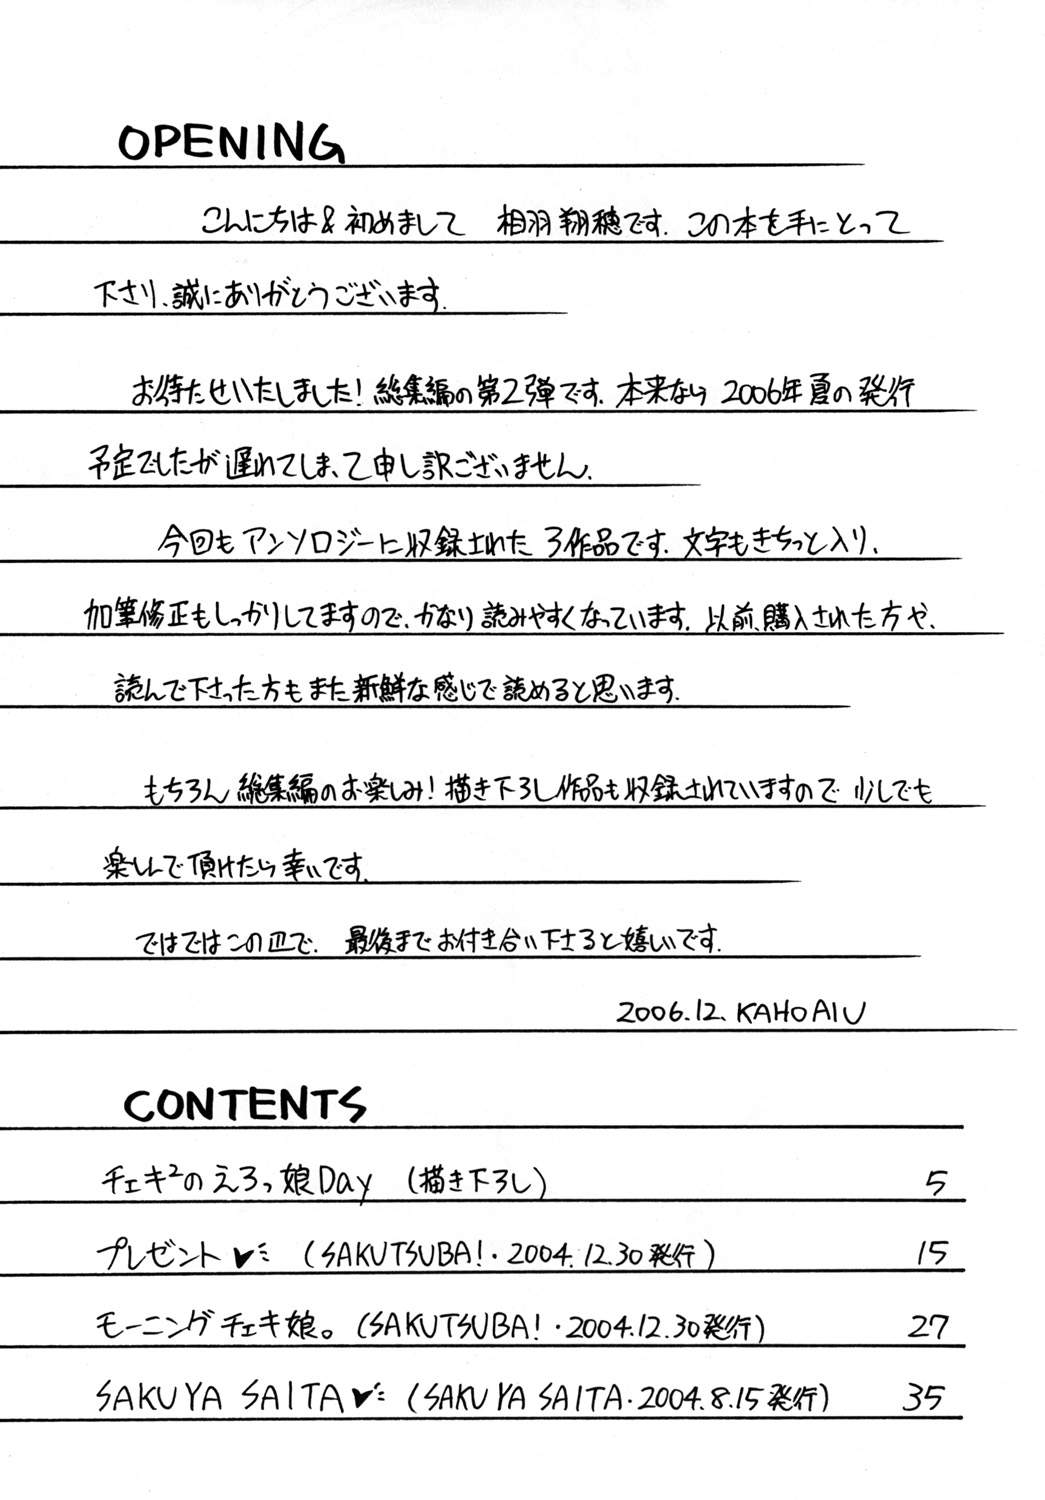 OPENING
こんにちは&初めまして 相羽翔穂です. この本を手にとって
下さり、誠にありがとうございます.
お待たせいたしました!総集編の第2弾です. 本来なら 2006年夏の発行
予定でしたが遅れてしまって申し訳ございません.
今回もアンソロジーに収録された 3作品です. 文字もきちっと入り、
加筆修正もしっかりしてますので、かなり読みやすくなっています. 以前、購入された方や、
読んで下さった方もまた新鮮な感じで読めると思います.
もちろん総集編のお楽しみ!描き下ろし作品も収録されていますので 少しでも
楽しんで頂けたら幸いです.
ではではこの辺で. 最後までお付き合い下さると嬉しいです.
2006.12. KAHO AIU
CONTENTS
チェキ²のえろっ娘Day (描き下ろし) 5
プレゼント♥ (SAKUTSUBA!・2004.12.30発行) 15
モーニングチェキ娘。(SAKUTSUBA!・2004.12.30発行) 27
SAKUYA SAITA♥ (SAKUYA SAITA・2004.8.15発行) 35